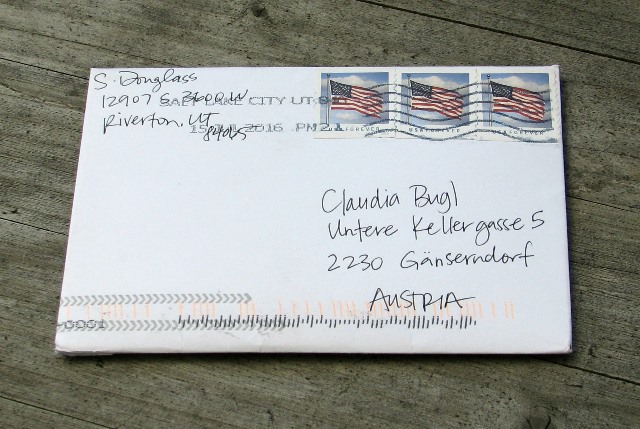 S. Douglass
12907 S. 3600 W
Riverton, UT
84065
SALT LAKE CITY UT
15 JUL 2016 PM 2 L
USA FOREVER USA FOREVER USA FOREVER
Claudia Bugl
Untere Kellergasse 5
2230 Gänserndorf
AUSTRIA
0001